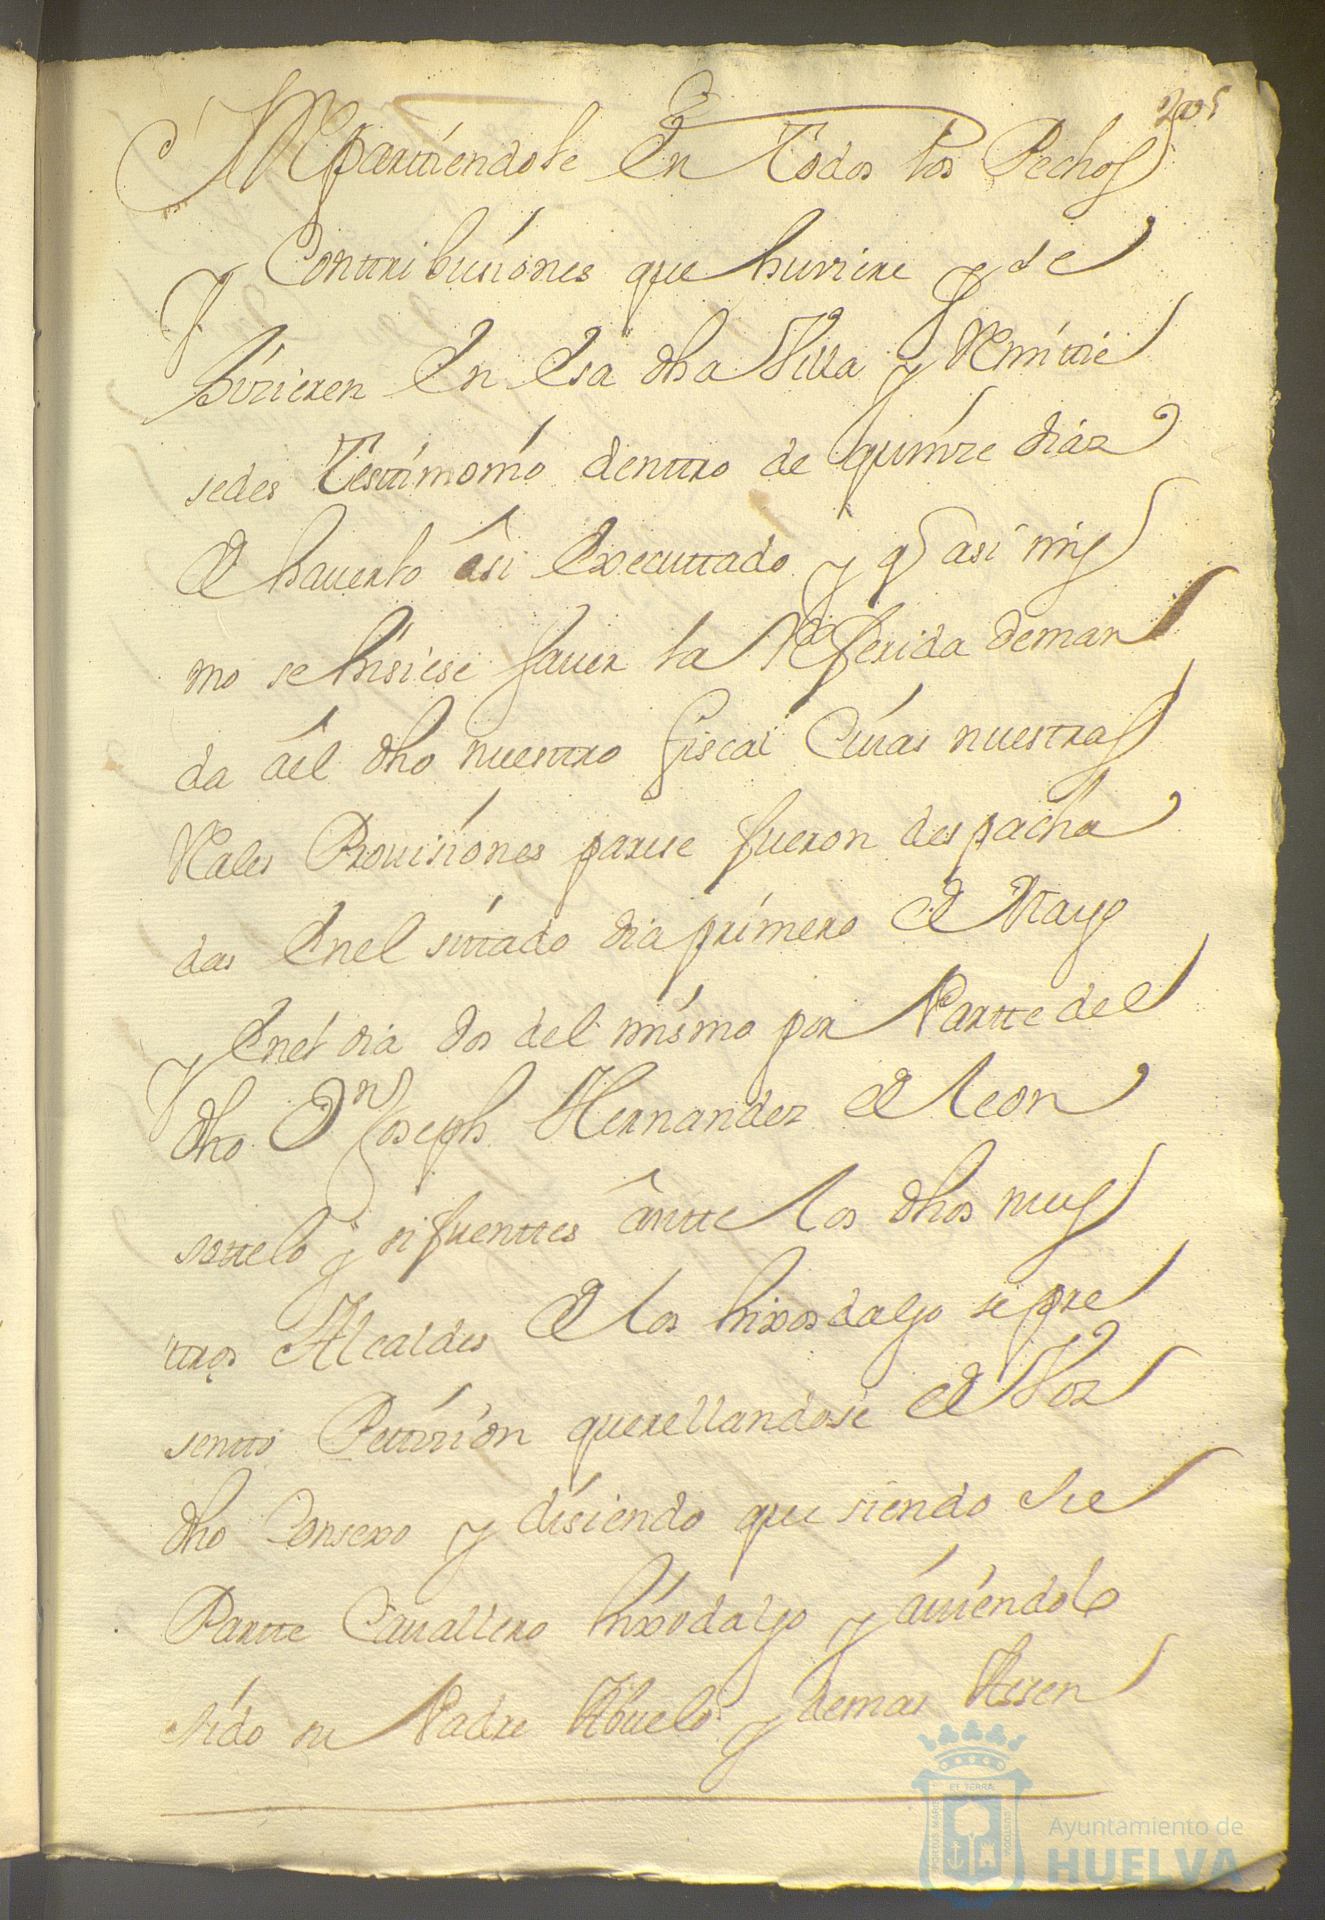 Repartiendole En todos los Pechos
y Conttribusiones que huviere y se
hizieren En Esa dha Villa y Remittie
sedes Testtimonio denttro de quinze diaz
de haverlo asi Executtado y q asi mis
mo se hisiese saver la Referida deman
da a el dho nuesttro fiscal Cuias nuestras
Rales Provisiones parese fueron despacha
das En el sittado dia primero de Mayo
y En el dia dos del mismo por Partte del
dho Dn Joseph Hernandez de Leon
sottelo y sifuenttes antte los dhos nues
ttros Alcaldes de los hixosdalgo se pre
sentto Pettizion querellandose de Voz
dho Consexo y disiendo que siendo su
Partte Cavallero hixodalgo y aviendolo
sido su Padre Abuelo y demas Assen
Ayuntamiento de
HUELVA